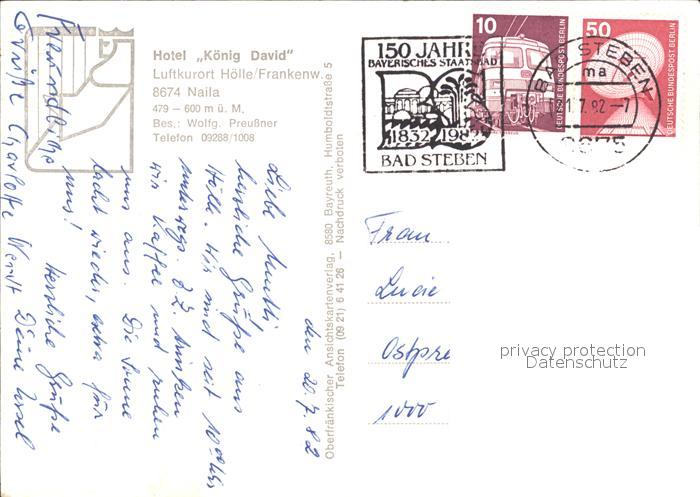 Hotel „König David"
Luftkurort Hölle/Frankenw.
8674 Naila
479 – 600 m ü. M.
Bes.: Wolfg. Preußner
Telefon 09288/1008
Oberfränkischer Ansichtskartenverlag, 8580 Bayreuth, Humboldtstraße 5
Telefon (09 21) 6 41 26 – Nachdruck verboten
150 JAHRE
BAYERISCHES STAATSBAD
1832 1982
BAD STEBEN
10
DEUTSCHE BUNDESPOST BERLIN
50
DEUTSCHE BUNDESPOST BERLIN
BAD STEBEN
ma
7.82-7
8675
den 20.7.82
Liebe Mutti,
herzliche Grüße aus
Hölle. Wir sind seit 10 Uhr
unterwegs. Z.Z. trinken
wir Kaffee und ruhen
uns aus. Die Sonne
lacht wieder, extra für
uns!
Herzliche Grüße
Deine Ursel
Freundliche
Grüße Charlotte
Frau
Lucie
Ostpre
1000
privacy protection
Datenschutz